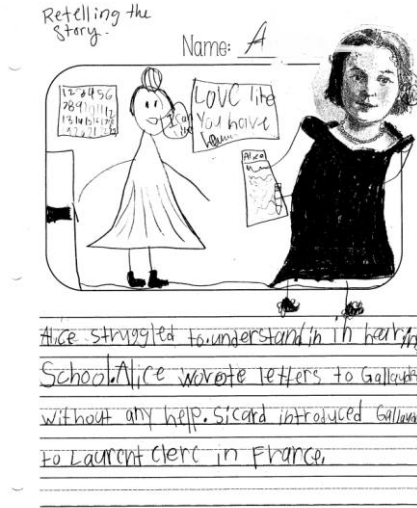 Retelling the
Story.
Name: A
123456
LOVE like
You have
Alice
Alice struggled to understand in in hearing
School. Alice worote letters to Gallaudet
without any help. Sicard introduced Gallaudet
to Laurent Clerc in France.